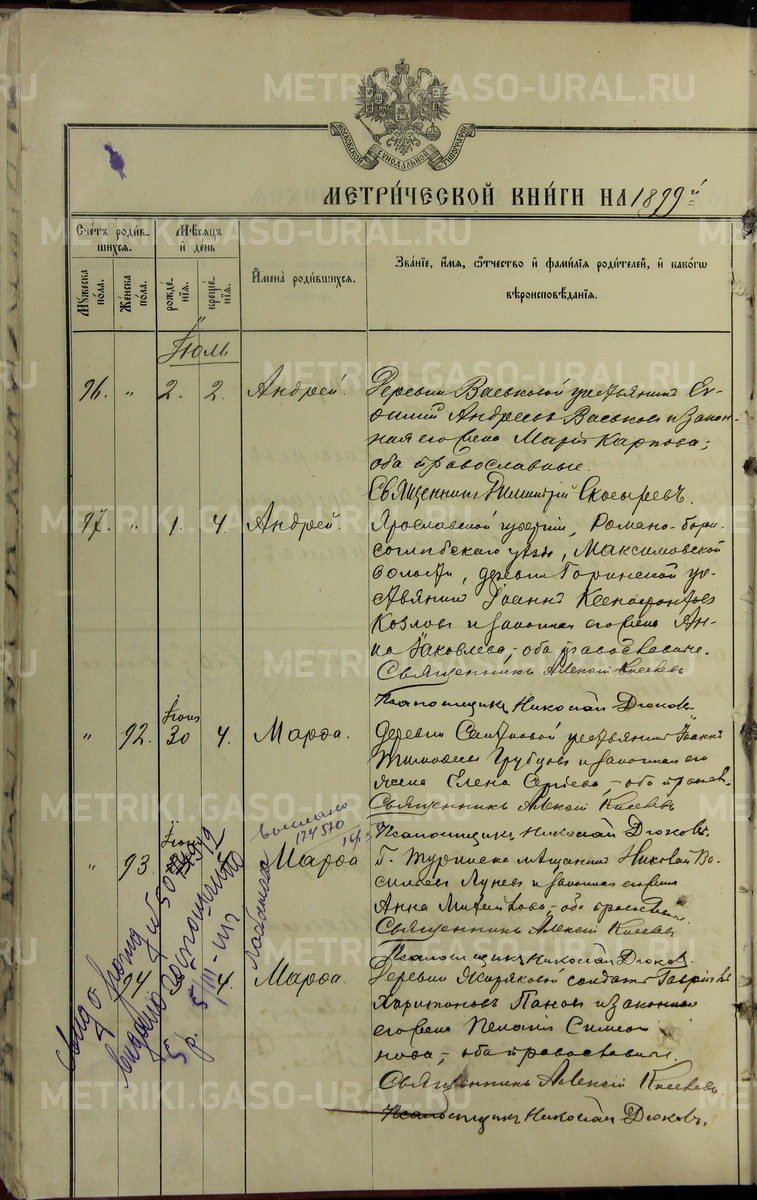 METRIKI.GASO-URAL.RU
МОСКОВСКОЙ СѴНОДАЛЬНОЙ ТИПОГРАФІИ
МЕТРИ́ЧЕСКОЙ КНИ́ГИ НА 1899й
Сче́тъ роди́вшихся.
Мꙋ́жеска по́ла.
Же́нска по́ла.
Мѣ́сяцъ и҆ де́нь
рожде́нїѧ.
креще́нїѧ.
И҆мена̀ роди́вшихсѧ.
Зва́нїе, и҆́мѧ, ѻ҆́тчество и҆ фами́лїѧ роди́телей, и҆ како́гѡ
вѣроисповѣ́данїѧ.
Іюль
96. " 2. 2. Андрей. Деревни Васьковой крестьянинъ Ев-
Андреевъ Васьковъ и закон-
ная его жена Марія Карпова;
оба православные.
Священникъ Димитрій Скосыревъ.
97. " 1. 4. Андрей. Ярославской губерніи, Романо-Бори-
соглѣбскаго уѣзда, Максимовской
волости, деревни Горинской кре-
стьянинъ Іоаннъ Ксенофонтовъ
Козловъ и законная его жена Ан-
на Яковлева, оба православные.
Священникъ Алексій
Псаломщикъ Николай Дюковъ.
" 92. Іюнь 30 4. Марѳа. Деревни крестьянинъ Іоаннъ
Тимоѳеевъ Грубцовъ и законная его
жена Елена Сергѣева, оба правосл.
Священникъ Алексій
Псаломщикъ Николай Дюковъ.
" 93. Іюнь Марѳа Г. Туринска мѣщанинъ Николай Ва-
сильевъ Луневъ и законная его жена
Анна Михайлова, оба православные
Священникъ Алексій
Псаломщикъ Николай Дюковъ.
94 4. Марѳа. Деревни Жиряковой солдатъ Гавріилъ
Харитоновъ Пановъ и законная
его жена Пелагія Симео-
нова, оба православные.
Священникъ Алексій
Псаломщикъ Николай Дюковъ.
выслано
174570